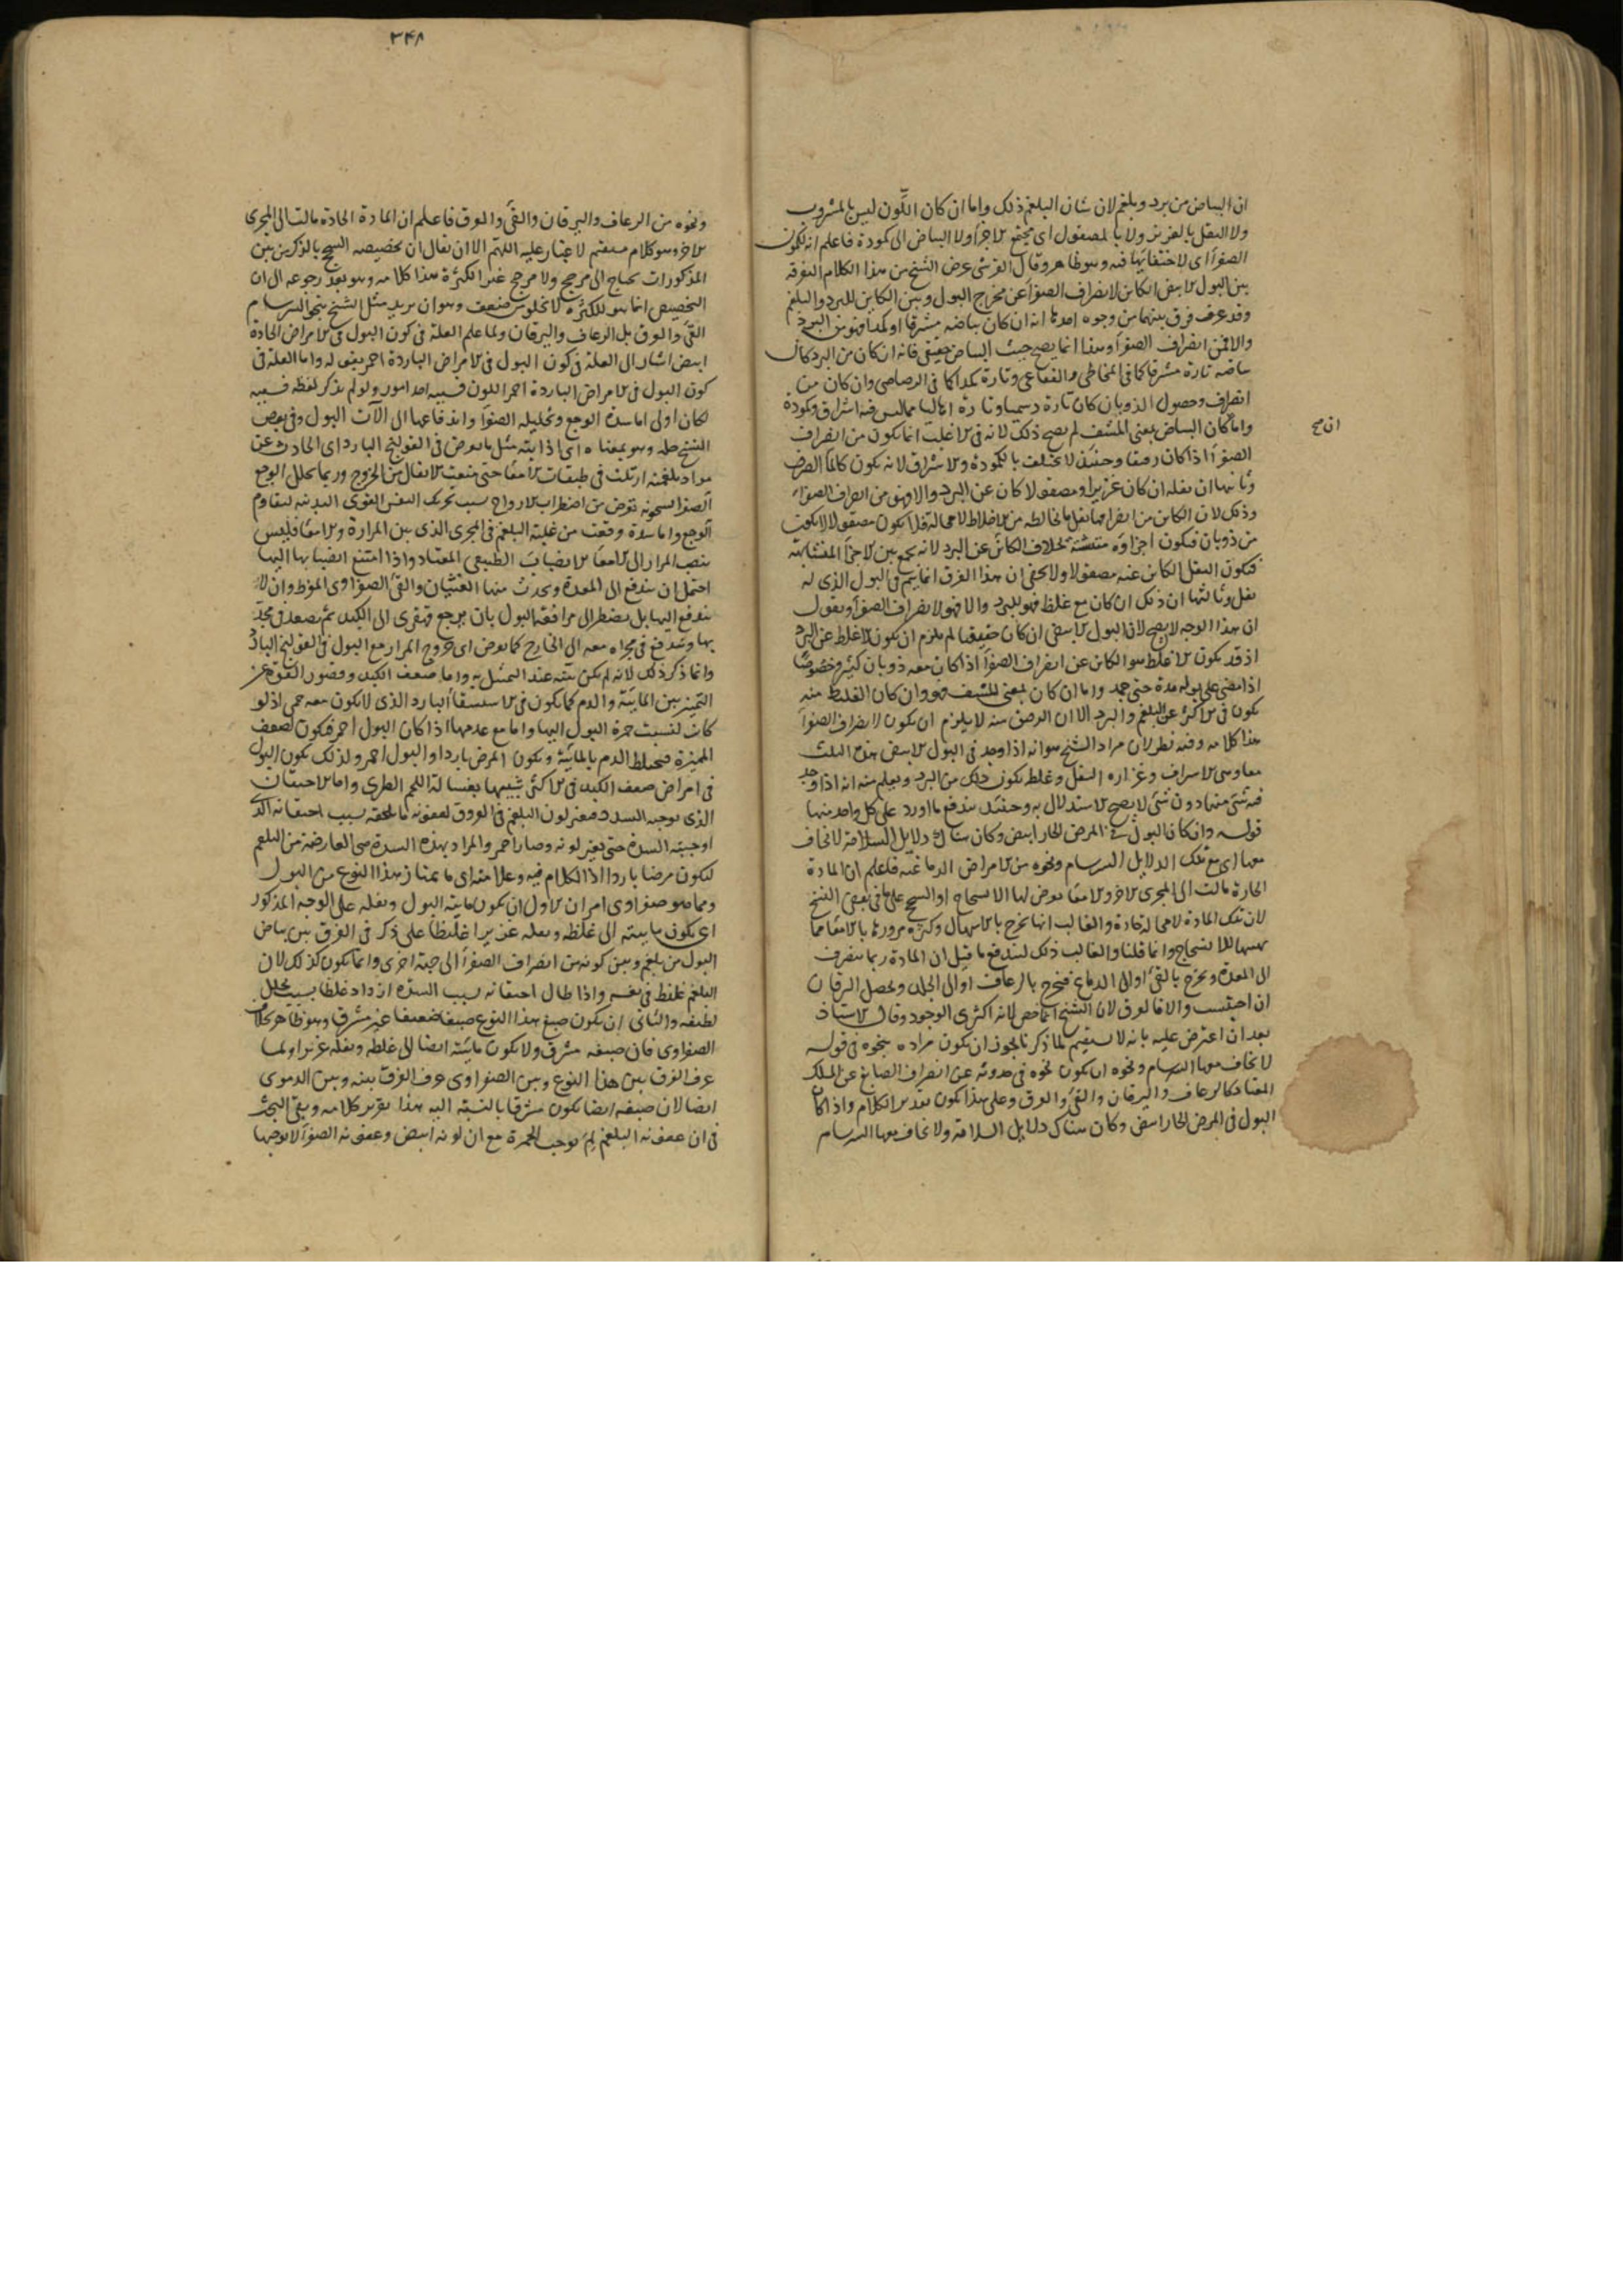 ان البياض من برد وبلغم لان شان البلغم ذلك واما ان كان اللون ليس بالمشروب
ولا الثفل بالغزير ولا بالمصقول اى مجتمع الاجزاء ولا البياض الى كمودة فاعلم انه لكمون
الصفرآ اى لاختفائها فيه وهو ظاهر وقال القرشى غرض الشيخ من هذا الكلام التفرقة
بين البول الابيض الكاين لانصراف الصفرآ عن مخرج البول وبين الكاين للبرد والبلغم
وقد عرف فرق بينهما من وجوه احدها انه ان كان بياضه مشرقا او كمدا فهو من البرد
والا فمن انصراف الصفرآ وهذا انما يصح حيث البياض حقيقى فانه ان كان من البرد كان
بياضه تارة مشرقا كما فى المخاطى والفقاعى وتارة كمدا كما فى الرصاصى وان كان من
انصراف وحصول الذوبان كان تارة دسميا وتارة اهاليا مما ليس فيه اشراق وكمودة
واما كان البياض بمعنى المشف لم يصح ذلك لانه فى الاغلب انما يكون من انصراف
ان صح
الصفرآ اذا كان رقيقا وحينئذ لا يختلف بالكمودة والاشراق لانه يكون كالمآ الصرف
وثانيها ان ثفله ان كان غزيرا ومصقولا كان عن البرد والا فهو من انصراف الصفرآ
وذلك لان الكاين من انصرافها يقل ما يخالطه من الاخلاط لا محالة فلا يكون مصقولا لانه يكون
من ذوبان فيكون اجزاؤه متشتتة بخلاف الكاين عن البرد لانه يجمع بين الاجزآ المتشابهة
فيكون الثفل الكاين عنه مصقولا ولا يخفى ان هذا الفرق انما يتم فى البول الذى له
ثفل وثالثها ان ذلك ان كان مع غلظ فهو للبرد والا فهو لانصراف الصفرآ ونقول
ان هذا الوجه لا يصح لان البول الابيض ان كان حقيقيا لم يلزم ان يكون الاغلظ عن البرد
اذ قد يكون الاغلظ هو الكاين عن انصراف الصفرآ اذا كان معه ذوبان كثير وخصوصا
اذا مضى على بوله مدة حتى جمد واما ان كان بمعنى المشف فهو وان كان الغليظ منه
يكون فى الاكثر عن البلغم والبرد الا ان الرقيق منه لا يلزم ان يكون لانصراف الصفرآ
هذا كلامه وفيه نظر لان مراد الشيخ هو انه اذا وجد فى البول الابيض هذه الثلث
معا وهى الاشراق وغزارة الثفل وغلظ يكون ذلك من البرد ويعلم منه انه اذا وجد
فيه شئ منها دون شئ لا يصح الاستدلال به وحينئذ يندفع ما اورد على كل واحد منها
قوله وان كان البول فى المرض الحار ابيض وكان هناك دلايل السلامة لا يخاف
معها اى مع تلك الدلايل السرسام ونحوه من الامراض الدماغية فاعلم ان المادة
الحارة مالت الى المجرى الاخر والامعا يعرض لها الانسحاج او السحج على ما فى بعض النسخ
لان تلك المادة لا محالة حادة والغالب انها تخرج بالاسهال وكثرة مرورها بالامعا مما
يهيئها للانسحاج وانما قلنا والغالب ذلك ليندفع ما قيل ان المادة ربما ينصرف
الى المعدة ويخرج بالقئ او الى الدماغ فيخرج بالرعاف او الى الجلد ويحصل اليرقان
ان احتبست والا فالعرق لان الشيخ انما خص لانه اكثرى الوجود وقال الاستاذ
بعد ان اعترض عليه بانه لا يستقيم لما ذكرنا يجوز ان يكون مراده بنحوه فى قوله
لا يخاف معها السرسام ونحوه ان يكون نحوه فى حدوثه عن انصراف الصابغ عن المسلك
المعتاد كالرعاف واليرقان والقئ والعرق وعلى هذا يكون تقدير الكلام واذا كان
البول فى المرض الحار ابيض وكان هناك دلايل السلامة ولا يخاف معها السرسام
٣٤٨
ونحوه من الرعاف واليرقان والقئ والعرق فاعلم ان المادة الحادة مالت الى المجرى
الاخر وهو كلام مستقيم لا غبار عليه اللهم الا ان يقال ان تخصيصه السحج بالذكر من بين
المذكورات يحتاج الى مرجح ولا مرجح غير الكثرة هذا كلامه وهو بعد رجوعه الى ان
التخصيص انما هو للكثرة لا يخلو عن ضعف وهو ان يريد مثل الشيخ بنحو السرسام
القئ والعرق بل الرعاف واليرقان ولما علم العلة فى كون البول فى الامراض الحادة
ابيض اشار الى العلة فى كون البول فى الامراض الباردة احمر بقوله واما العلة فى
كون البول فى الامراض الباردة احمر اللون فسببه احد امور ولو لم يذكر لفظه فسببه
لكان اولى اما شدة الوجع وتحليله الصفرآ واندفاعها الى الات البول وفى بعض
النسخ حله وهو بمعناه اى اذابته مثل ما يعرض فى القولنج البارد اى الحادث عن
مواد بلغمية ارتبكت فى طبقات الامعا حتى منعت الاثفال من الخروج وربما يحلل الوجع
الصفرآ لسخونة تعرض من اضطراب الارواح بسبب تحريك النفس القوى البدنية ليقاوم
الوجع واما سدة وقعت من غلبة البلغم فى المجرى الذى بين المرارة والامعا فليس
ينصب المرار الى الامعا الانصباب الطبيعى المعتاد واذا امتنع انصبابها اليها
احتمل ان يندفع الى المعدة ويحدث منها الغثيان والقئ الصفراوى المفرط وان لا
يندفع اليها بل يضطر الى مرافقة البول بان يرجع قهقرى الى الكبد ثم يصعد فى محدبها
بها ويندفع فى مجراه معه الى الخارج كما يعرض اى خروج المرار مع البول فى القولنج البارد
وانما ذكر ذلك لانه لم يكن بينه عند التمثيل به واما ضعف الكبد وقصور القوة عن
التميز بين المائية والدم كما يكون فى الاستسقآ البارد الذى لا يكون معه حمى اذ لو
كانت لنسبت حمرة البول اليها واما مع عدمها اذا كان البول احمر فيكون لضعف
المميزة فيختلط الدم بالمائية ويكون المرض باردا والبول احمر ولذلك يكون البول
فى امراض ضعف الكبد فى الاكثر شبيها بغسالة اللحم الطرى واما الاحتقان
الذى يوجبه السدد فيتغير لون البلغم فى العروق لعفونة ما يلحقه بسبب احتقانه الذى
اوجبته السدة حتى يتغير لونه وصار احمر والمراد بهذه السدة هى العارضة من البلغم
ليكون مرضا باردا اذ الكلام فيه وعلامته اى ما يمتاز هذا النوع من البول
ومما هو صفراوى امران الاول ان يكون مائية البول وثفله على الوجه المذكور
اى يكون مائيته الى غلظ وثفله غزيرا غليظا على ذكر فى الفرق بين بياض
البول من بلغم وبين كونه من انصراف الصفرآ الى جهة اخرى وانما يكون كذلك لان
البلغم غليظ فى نفسه واذا طال احتقانه بسبب السدة ازداد غلظا بسبب تحلل
لطيفه والثانى ان يكون صبغ هذا النوع صبغا ضعيفا غير مشرق وهو ظاهر بخلاف
الصفراوى فان صبغه مشرق ولا يكون مائيته ايضا الى غلظ وثفله غزيرا ولما
عرف الفرق بين هذا النوع وبين الصفراوى عرف الفرق بينه وبين الدموى
ايضا لان صبغه ايضا يكون مشرقا بالنسبة اليه هذا تقرير كلامه وبقى البحث
فى ان عفونة البلغم لم يوجب الحمرة مع ان لونه ابيض وعفونة الصفرآ لا يوجبها